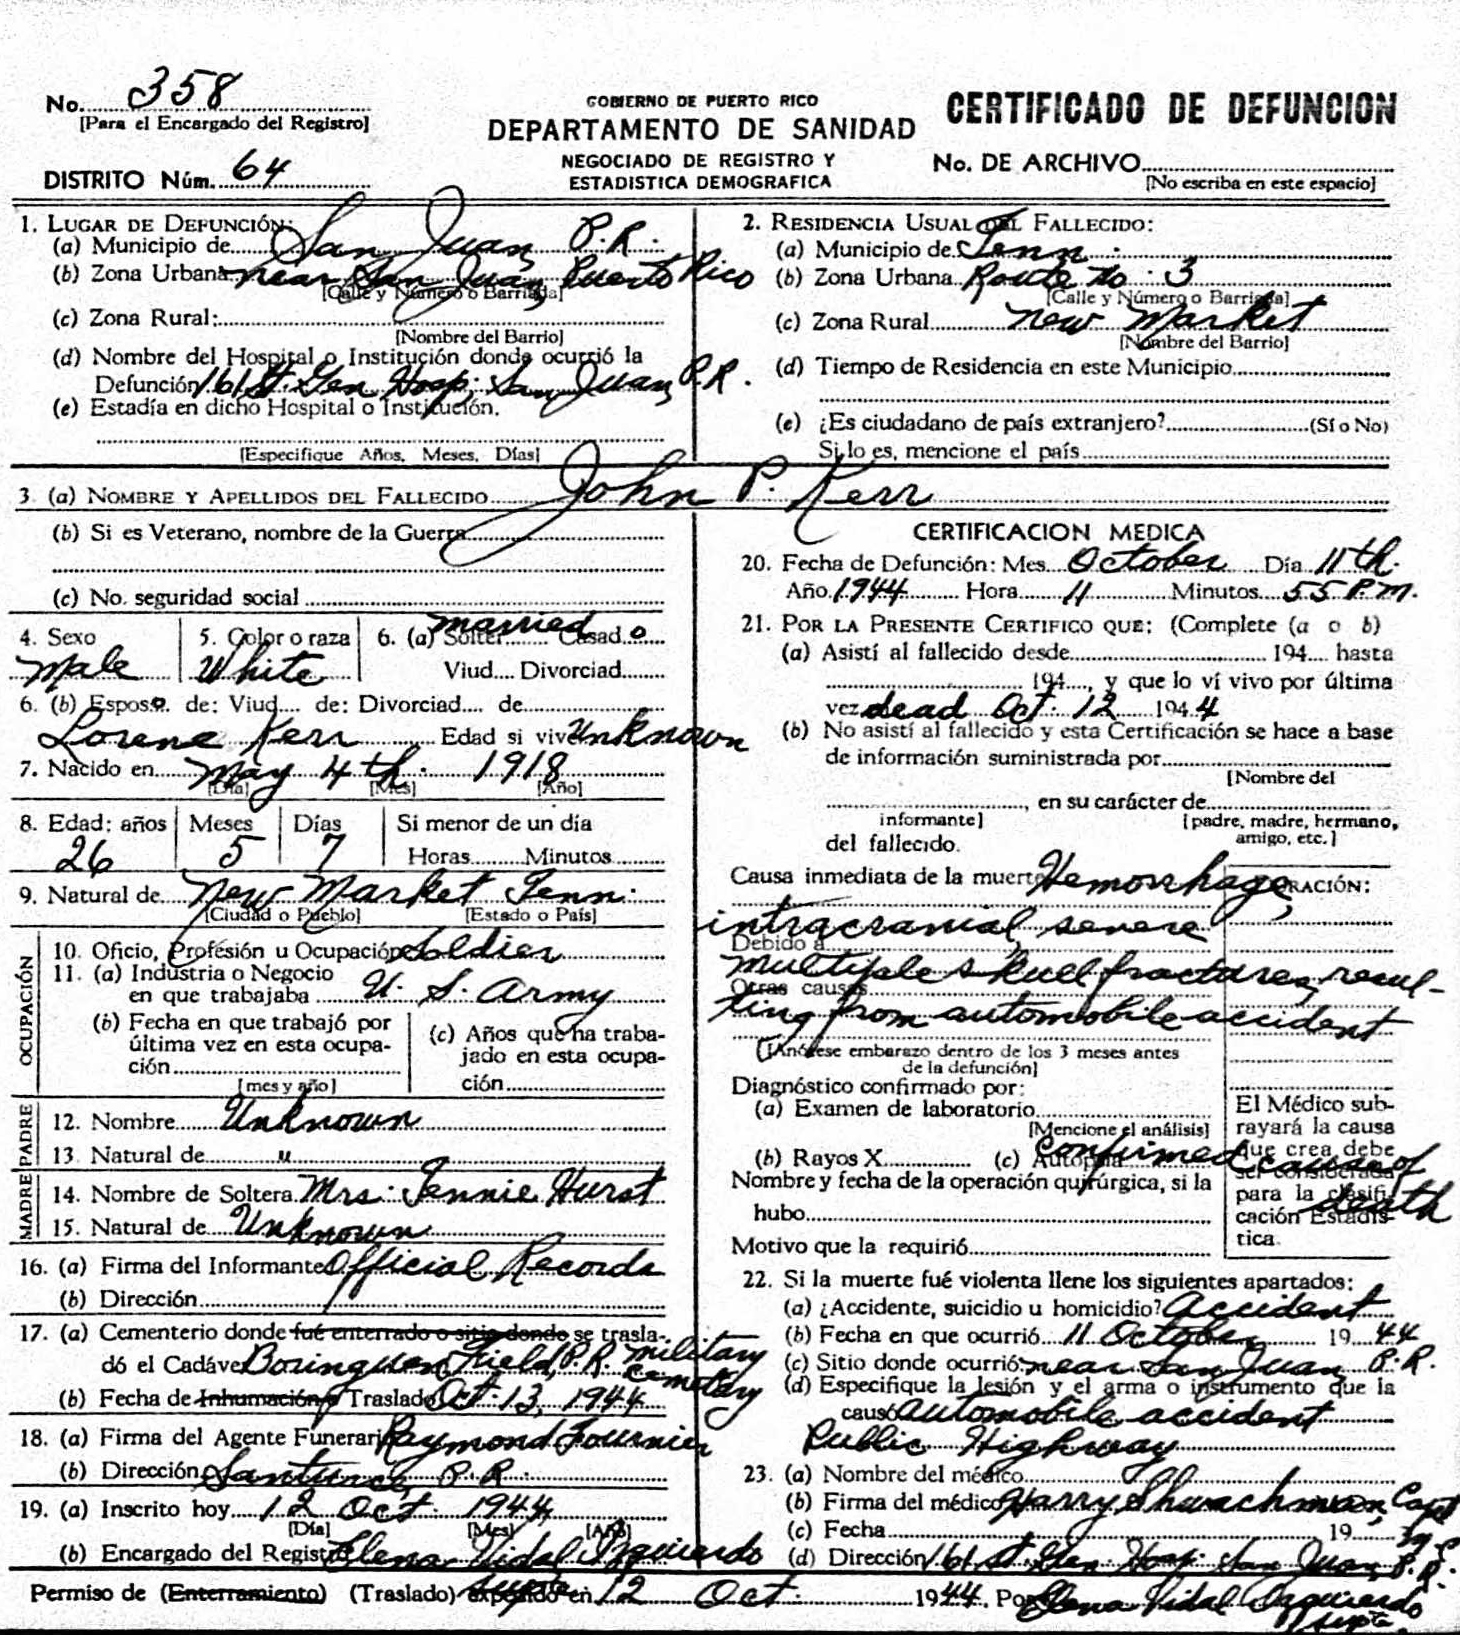 No. 358
[Para el Encargado del Registro]
DISTRITO Núm. 64
GOBIERNO DE PUERTO RICO
DEPARTAMENTO DE SANIDAD
NEGOCIADO DE REGISTRO Y
ESTADISTICA DEMOGRAFICA
CERTIFICADO DE DEFUNCION
No. DE ARCHIVO
[No escriba en este espacio]
1. LUGAR DE DEFUNCIÓN:
(a) Municipio de San Juan, P.R.
(b) Zona Urbana near San Juan, Puerto Rico
[Calle y Número o Barriada]
(c) Zona Rural:
[Nombre del Barrio]
(d) Nombre del Hospital o Institución donde ocurrió la
Defunción 161 St. Gen Hosp; San Juan, P.R.
(e) Estadía en dicho Hospital o Institución.
[Especifique Años, Meses, Días]
2. RESIDENCIA USUAL DEL FALLECIDO:
(a) Municipio de Tenn.
(b) Zona Urbana Route no. 3
[Calle y Número o Barriada]
(c) Zona Rural New Market
[Nombre del Barrio]
(d) Tiempo de Residencia en este Municipio
(e) ¿Es ciudadano de país extranjero? (Sí o No)
Si lo es, mencione el país
3 (a) NOMBRE Y APELLIDOS DEL FALLECIDO John P. Kerr
(b) Si es Veterano, nombre de la Guerra
(c) No. seguridad social
4. Sexo
Male
5. Color o raza
White
6. (a) Solter married Casado
Viud.... Divorciad
6. (b) Esposo de: Viud.... de: Divorciad.... de
Lorene Kerr Edad si vive Unknown
7. Nacido en May 4th. 1918
[Día] [Mes] [Año]
8. Edad: años Meses Días Si menor de un día
26 5 7 Horas Minutos
9. Natural de New Market Tenn.
[Ciudad o Pueblo] [Estado o País]
OCUPACIÓN
10. Oficio, Profesión u Ocupación Soldier
11. (a) Industria o Negocio
en que trabajaba U. S. Army
(b) Fecha en que trabajó por
última vez en esta ocupa-
ción
[mes y año]
(c) Años que ha traba-
jado en esta ocupa-
ción
PADRE
12. Nombre Unknown
13. Natural de "
MADRE
14. Nombre de Soltera Mrs. Jennie Hurst
15. Natural de Unknown
16. (a) Firma del Informante Official Records
(b) Dirección
17. (a) Cementerio donde fué enterrado o sitio donde se trasla-
dó el Cadáver Borinquen Field, P.R. Military Cemetery
(b) Fecha de Inhumación o Traslado Oct. 13, 1944
18. (a) Firma del Agente Funerari Raymond Fournier
(b) Dirección Santurce, P.R.
19. (a) Inscrito hoy 12 Oct. 1944
[Día] [Mes] [Año]
(b) Encargado del Registro Elena Vidal Izquierdo
CERTIFICACION MEDICA
20. Fecha de Defunción: Mes October Día 11th.
Año 1944 Hora 11 Minutos 55 P.M.
21. POR LA PRESENTE CERTIFICO QUE: (Complete (a o b)
(a) Asistí al fallecido desde 194.... hasta
194...., y que lo ví vivo por última
vez dead Oct. 12 1944
(b) No asistí al fallecido y esta Certificación se hace a base
de información suministrada por
[Nombre del
, en su carácter de
informante] [padre, madre, hermano,
amigo, etc.]
del fallecido.
Causa inmediata de la muerte Hemorrhage, RACIÓN:
intracranial, severe
Debido a
multiple skull fractures, resul-
Otras causas
ting from automobile accident
[Anótese embarazo dentro de los 3 meses antes
de la defunción]
Diagnóstico confirmado por:
(a) Examen de laboratorio
[Mencione el análisis]
(b) Rayos X (c) Autopsia confirmed cause of death
Nombre y fecha de la operación quirúrgica, si la
hubo
Motivo que la requirió
El Médico sub-
rayará la causa
que crea debe
ser considerada
para la clasifi-
cación Estadís-
tica.
22. Si la muerte fué violenta llene los siguientes apartados:
(a) ¿Accidente, suicidio u homicidio? Accident
(b) Fecha en que ocurrió 11 October 1944
(c) Sitio donde ocurrió: near San Juan P.R.
(d) Especifique la lesión y el arma o instrumento que la
causó automobile accident
Public Highway
23. (a) Nombre del médico
(b) Firma del médico Harry Shwachman, Capt
(c) Fecha 19
(d) Dirección 161 st. Gen Hosp. San Juan, P.R.
Permiso de (Enterramiento) (Traslado) expedido en 12 Oct. 1944, Por Elena Vidal Izquierdo